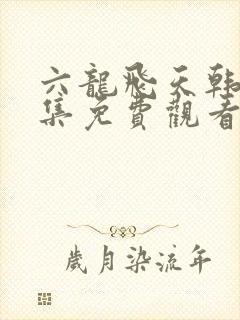 六龍飛天韩
集免費觀看
歲月染流年